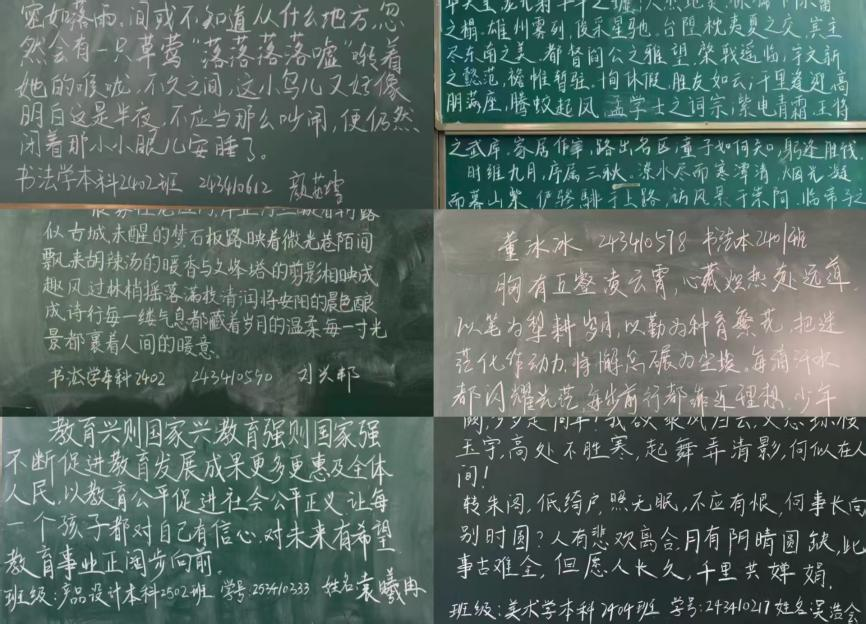 密如落雨,间或不知道从什么地方,忽
然会有一只草莺"落落落落嘘"啭着
她的喉咙,不久之间,这小鸟儿又好像
明白这是半夜,不应当那么吵闹,便仍然
闭着那小小眼儿安睡了。
书法学本科2402班 243410612
之榻,雄州雾列,俊采星驰,台隍枕夷夏之交,宾主
尽东南之美,都督阎公之雅望,棨戟遥临;宇文新
之懿范,襜帷暂驻,十旬休假,胜友如云;千里逢迎,高
朋满座,腾蛟起凤,孟学士之词宗;紫电青霜,王将
之武库,家居作宰,路出名区;童子如何知,躬逢胜饯
时维九月,序属三秋。潦水尽而寒潭清,烟光凝
而暮山紫,俨骖騑于上路,访风景于崇阿,临帝子
似古城未醒的梦石板路映着微光巷陌间
飘来胡辣汤的暖香与文峰塔的剪影相映成
趣风过林梢摇落满枝清润将安阳的晨色酿
成诗行每一缕气息都藏着岁月的温柔每一寸光
景都裹着人间的暖意.
书法学本科2402 243410590 刘兴邦
董冰冰 243410578 书法本2401班
胸有丘壑凌云霄,心藏炽热赴远道.
以笔为犁耕岁月,以勤为种育繁花,把迷
茫化作动力,将懈怠碾为尘埃。每滴汗水
都闪耀光芒,每步前行都靠近理想,少年
教育兴则国家兴教育强则国家强
不断促进教育发展成果更多更惠及全体
人民,以教育公平促进社会公平正义,让每
一个孩子都对自己有信心,对未来有希望
教育事业正阔步向前.
班级:产品设计本科2502班 学号:253410333 姓名袁曦冉
玉宇,高处不胜寒,起舞弄清影,何似在人
间!
转朱阁,低绮户,照无眠,不应有恨,何事长向
别时圆?人有悲欢离合,月有阴晴圆缺,此
事古难全,但愿人长久,千里共婵娟.
班级:美术学本科2404班 学号:243410217 姓名:吴浩会